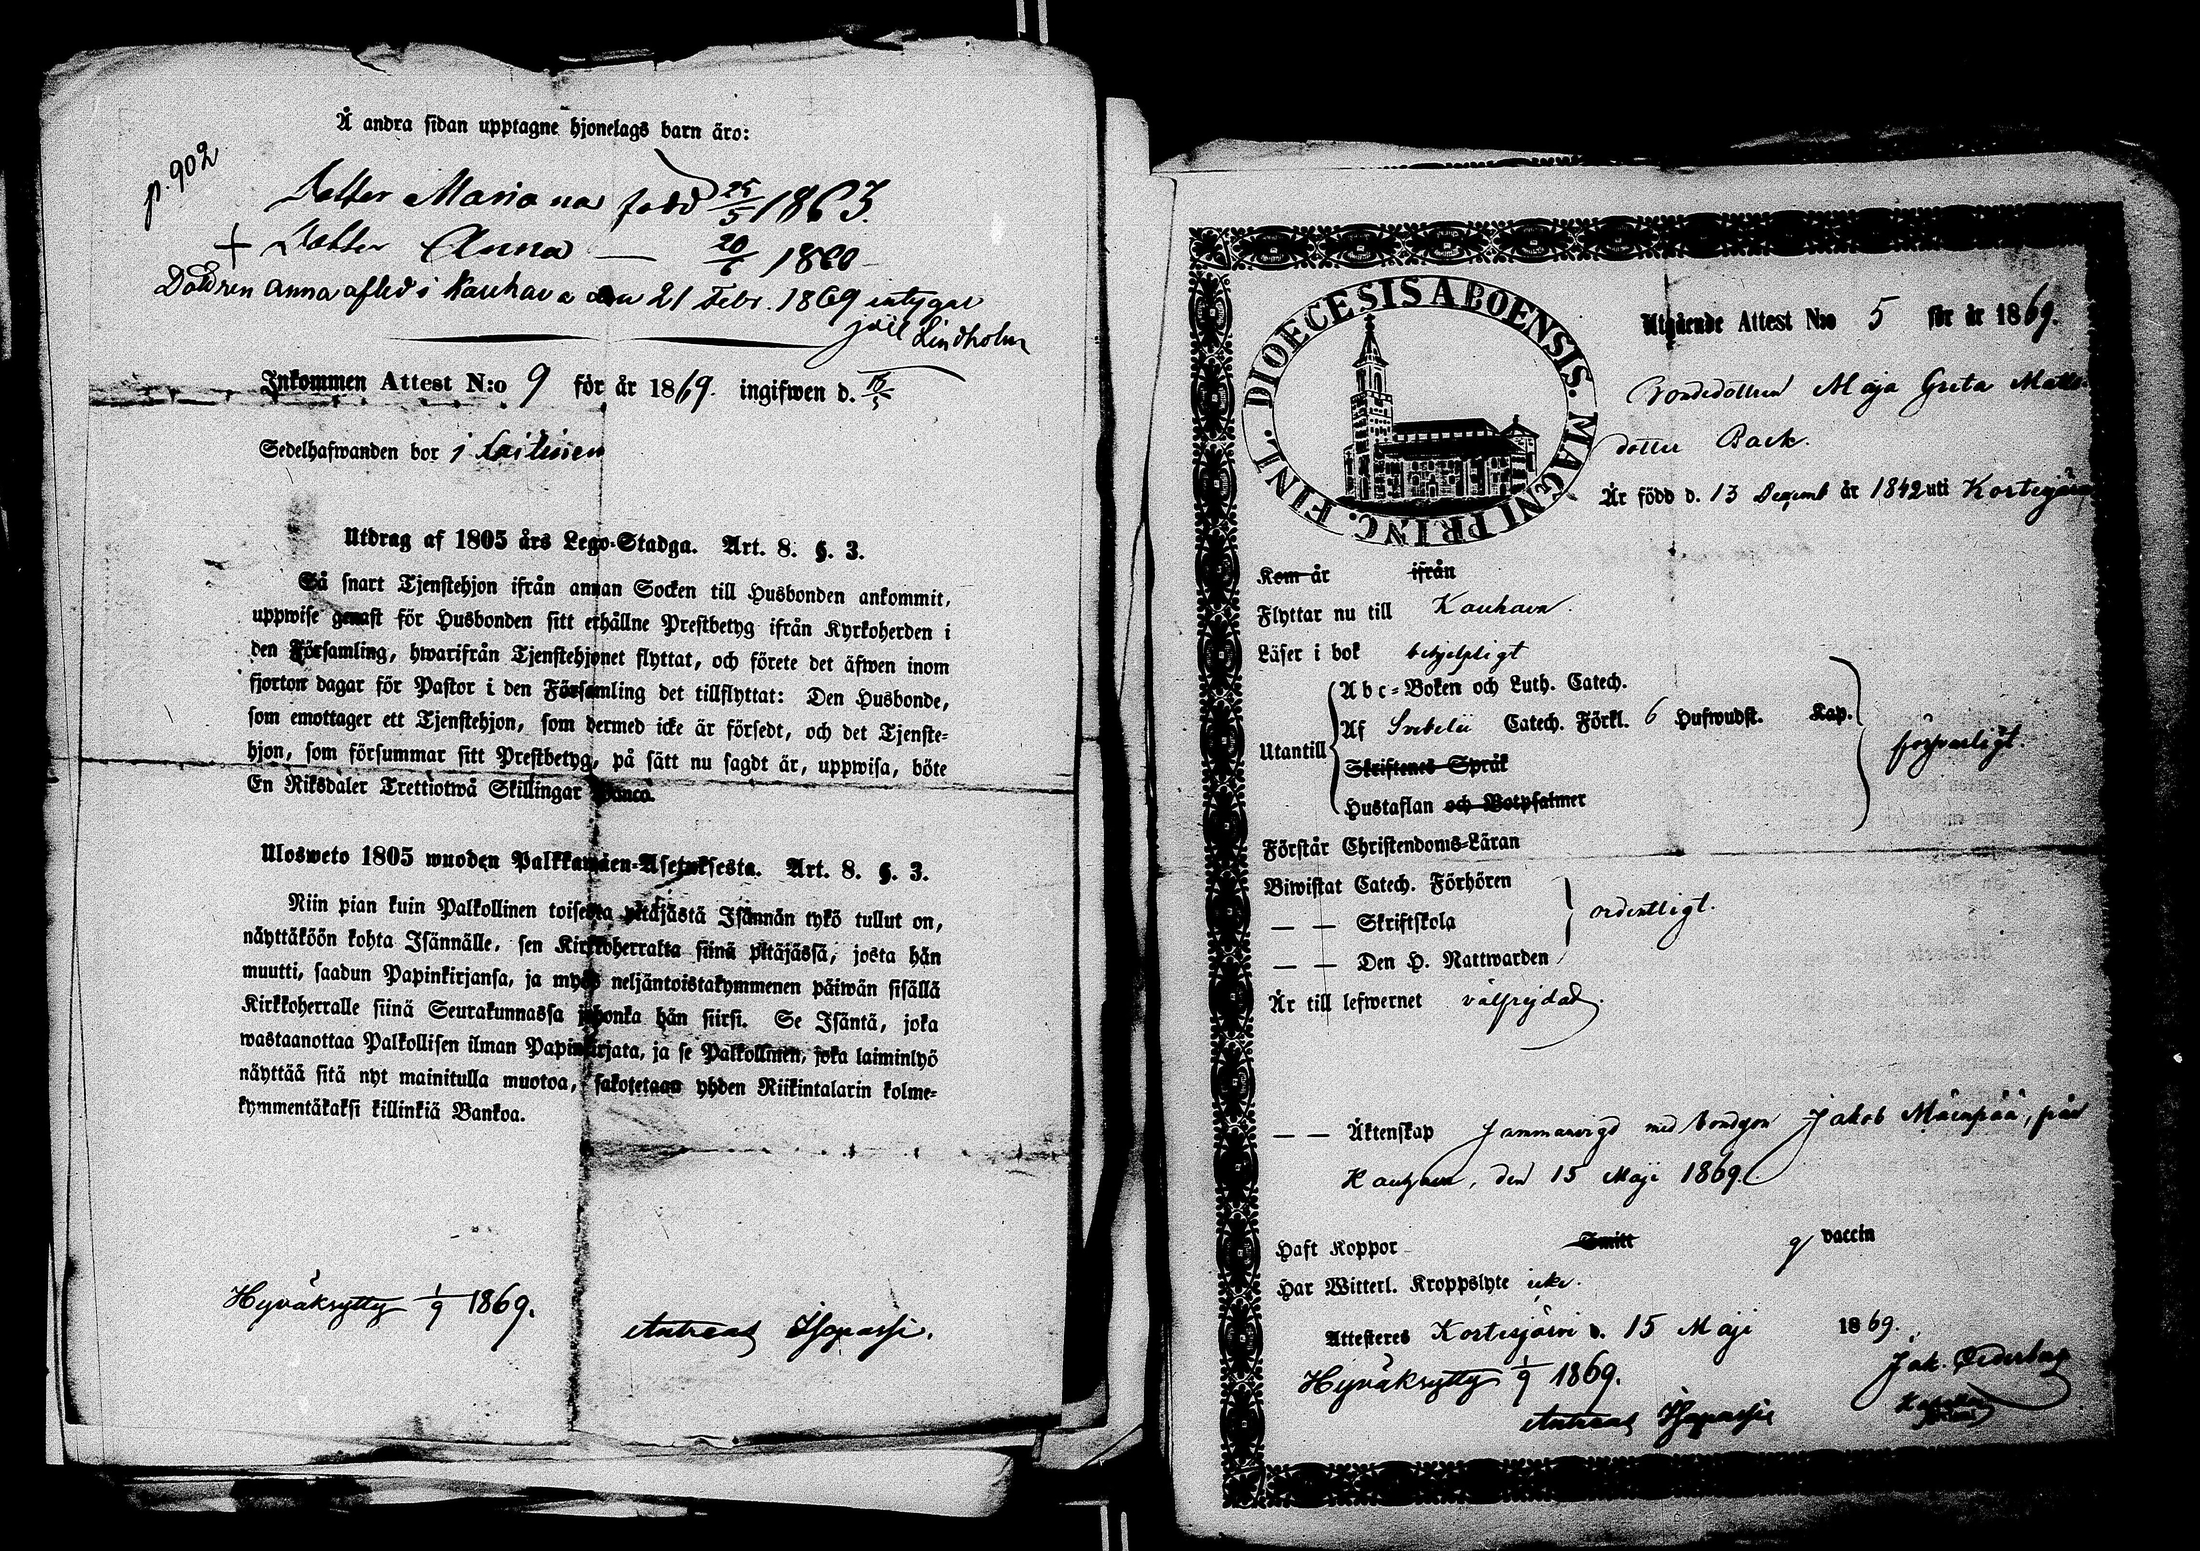 Å andra sidan upptagne hjonelags barn äro:
p. 902
Dotter Mariana född 25/5 1863.
+ Dotter Anna — 20/6 1860
Dottren Anna afled i Kauhava den 21 Febr. 1869 intygar
Joel Lindholm
Inkommen Attest N:o 9 för år 1869. ingifwen d.
Sedelhafwanden bor i
Utdrag af 1805 års Lego-Stadga. Art. 8. §. 3.
Så snart Tjenstehjon ifrån annan Socken till Husbonden ankommit,
uppwise genast för Husbonden sitt erhållne Prestbetyg ifrån Kyrkoherden i
den Församling, hwarifrån Tjenstehjonet flyttat, och förete det äfwen inom
fjorton dagar för Pastor i den Församling det tillflyttat: Den Husbonde,
som emottager ett Tjenstehjon, som dermed icke är försedt, och det Tjenste-
hjon, som försummar sitt Prestbetyg, på sätt nu sagdt är, uppwisa, böte
En Riksdaler Trettiotwå Skillingar Banco.
Ulosweto 1805 wuoden Palkkawäen-Asetuksesta. Art. 8. §. 3.
Niin pian kuin Palkollinen toisesta pitäjästä Isännän tykö tullut on,
näyttäköön kohta Isännälle, sen Kirkkoherralta siinä pitäjässä, josta hän
muutti, saadun Papinkirjansa, ja myös neljäntoistakymmenen päiwän sisällä
Kirkkoherralle siinä Seurakunnassa johonka hän siirsi. Se Isäntä, joka
wastaanottaa Palkollisen ilman Papinkirjata, ja se Palkollinen, joka laiminlyö
näyttää sitä nyt mainitulla muotoa, sakotetaan yhden Riikintalarin kolme-
kymmentäkaksi killinkiä Bankoa.
Hyväksytty 1/9 1869.
Andreas Isopassi.
DIOECESIS ABOENSIS. MAGNI PRINC. FINL.
Utgående Attest N:o 5 för år 1869.
Bondedottren Maja Greta Matts-
dotter Back.
Är född d. 13 Decemb år 1842 uti Kortesjärvi
Kom år ifrån
Flyttar nu till Kauhava.
Läser i bok behjelpligt
Utantill
Abc-Boken och Luth. Catech.
Af Svebelii Catech. Förkl. 6 Hufwudst. Kap.
Skriftenes Språk
Hustaflan och Botpsalmer
försvarligt.
Förstår Christendoms-Läran
Biwistat Catech. Förhören
— — Skriftskola
— — Den H. Nattwarden
ordentligt.
Är till lefwernet välfrejdad.
— — Äktenskap sammanvigd med bondson Jakob Mäenpää, från
Kauhava, den 15 Maji 1869.
Haft Koppor Smitt g vaccin
Har Witterl. Kroppslyte icke.
Attesteres Kortesjärvi d. 15 Maji 1869.
Hyväksytty 1/9 1869.
Jak.
Andreas Isopassi